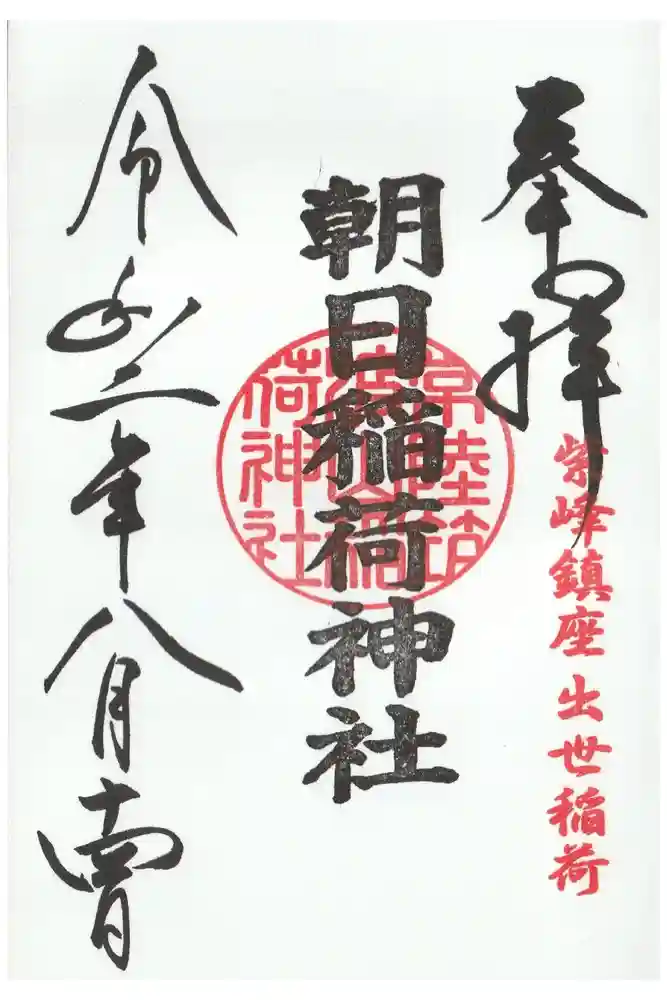 奉拝
紫峰鎮座 出世稲荷
朝日稲荷神社
常陸筑
荷神社
令和二年八月十四日